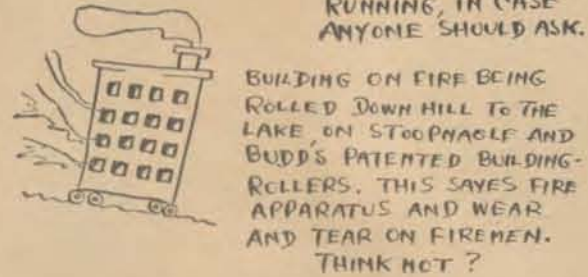 RUNNING, IN CASE
ANYONE SHOULD ASK.
BUILDING ON FIRE BEING
ROLLED DOWN HILL TO THE
LAKE, ON STOOPNAGLE AND
BUDD'S PATENTED BUILDING-
ROLLERS. THIS SAVES FIRE
APPARATUS AND WEAR
AND TEAR ON FIREMEN.
THINK NOT?